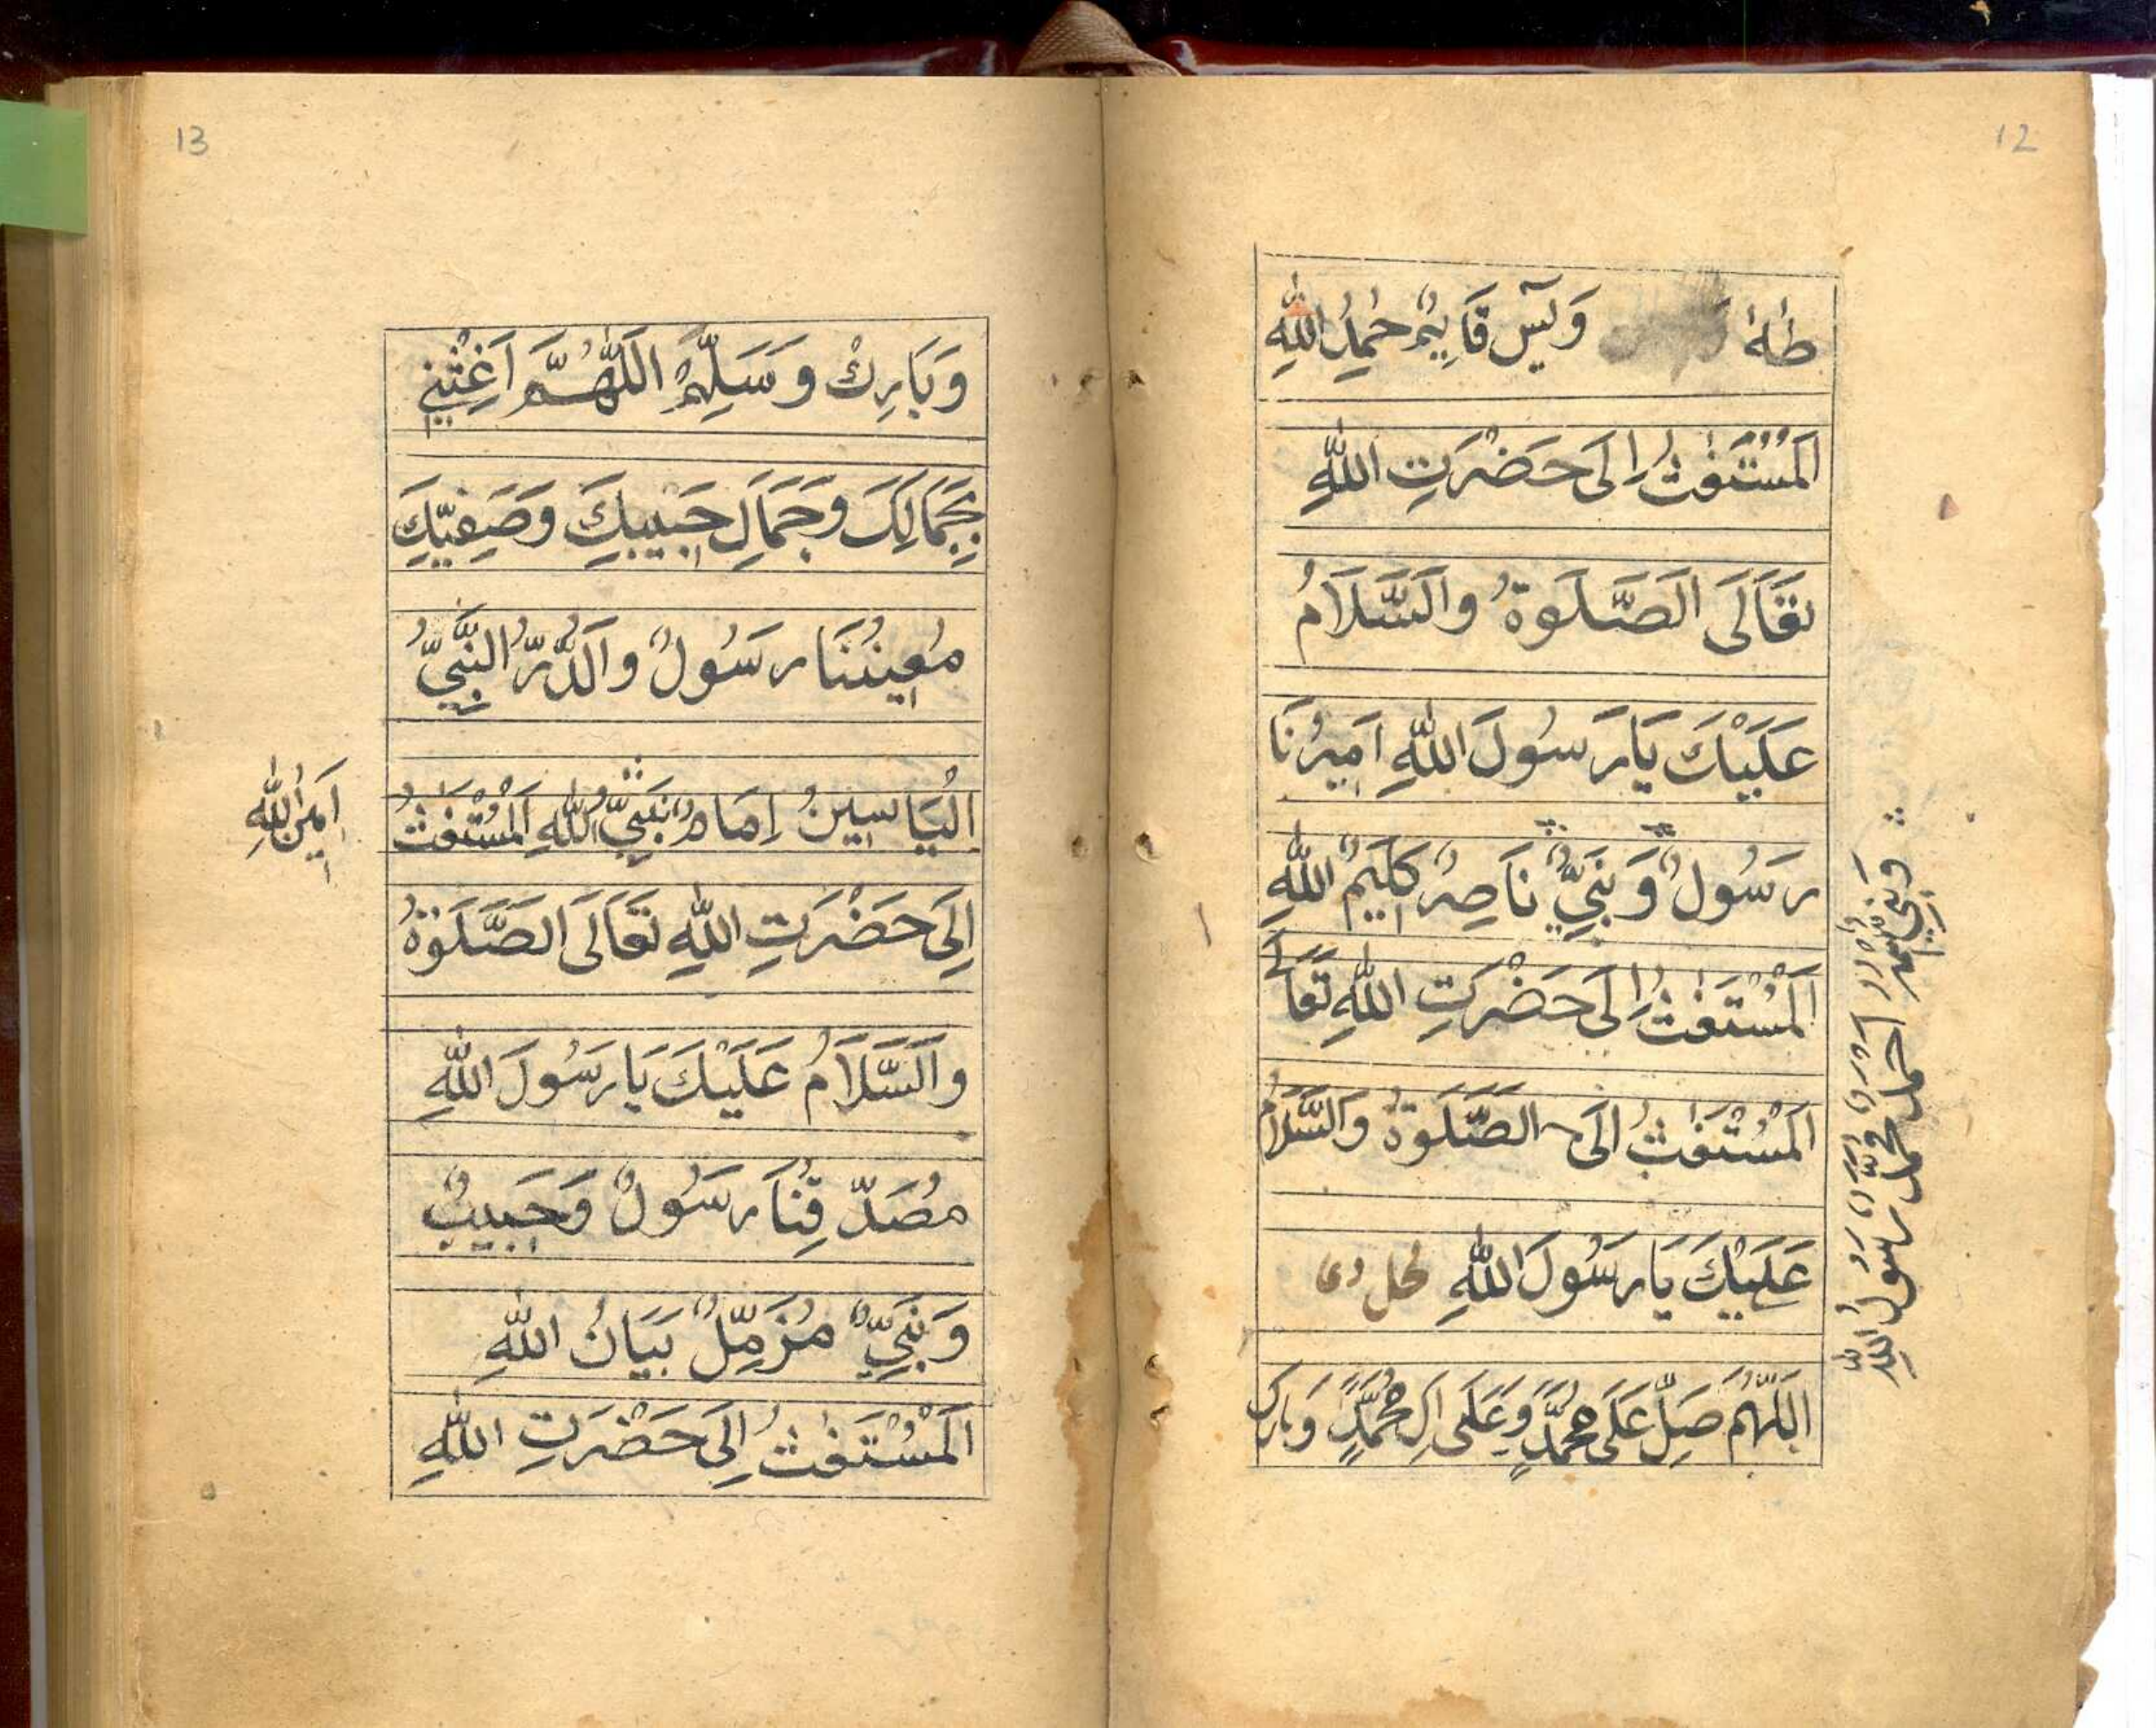 12
طٰهٰ وَيٰسٓ قَايِمٌ حٰمِدُ اللّٰهِ
اَلْمُسْتَغٰثُ اِلَى حَضْرَتِ اللّٰهِ
تَعَالَى اَلصَّلَوةُ وَالسَّلَامُ
عَلَيْكَ يَارَسُولَ اللّٰهِ اَمِيرُنَا
رَسُولٌ وَنَبِيٌّ نَاصِرٌ كَلِيمُ اللّٰهِ
اَلْمُسْتَغٰثُ اِلَى حَضْرَتِ اللّٰهِ تَعَالَى
اَلْمُسْتَغٰثُ اِلَى الصَّلَوةُ وَالسَّلَامُ
عَلَيْكَ يَارَسُولَ اللّٰهِ
اَللّٰهُمَّ صَلِّ عَلَى مُحَمَّدٍ وَعَلَى اٰلِ مُحَمَّدٍ وَبَارِكْ
اَحْمَدُ مُحَمَّدٌ رَسُولُ اللّٰهِ
13
وَبَارِكْ وَسَلِّمْ اَللّٰهُمَّ اَغِثْنِي
بِجَمَالِكَ وَجَمَالِ حَبِيبِكَ وَصَفِيِّكَ
مُعِينُنَا رَسُولٌ وَالدُّرُّ النَّبِيُّ
الْيَاسِينُ اِمَامٌ نَبِيُّ اللّٰهِ اَلْمُسْتَغٰثُ
اِلَى حَضْرَتِ اللّٰهِ تَعَالَى اَلصَّلَوةُ
وَالسَّلَامُ عَلَيْكَ يَارَسُولَ اللّٰهِ
مُصَدِّقُنَا رَسُولٌ وَحَبِيبٌ
وَنَبِيٌّ مُزَمِّلٌ بَيَانُ اللّٰهِ
اَلْمُسْتَغٰثُ اِلَى حَضْرَتِ اللّٰهِ
اَمِينُ اللّٰهِ